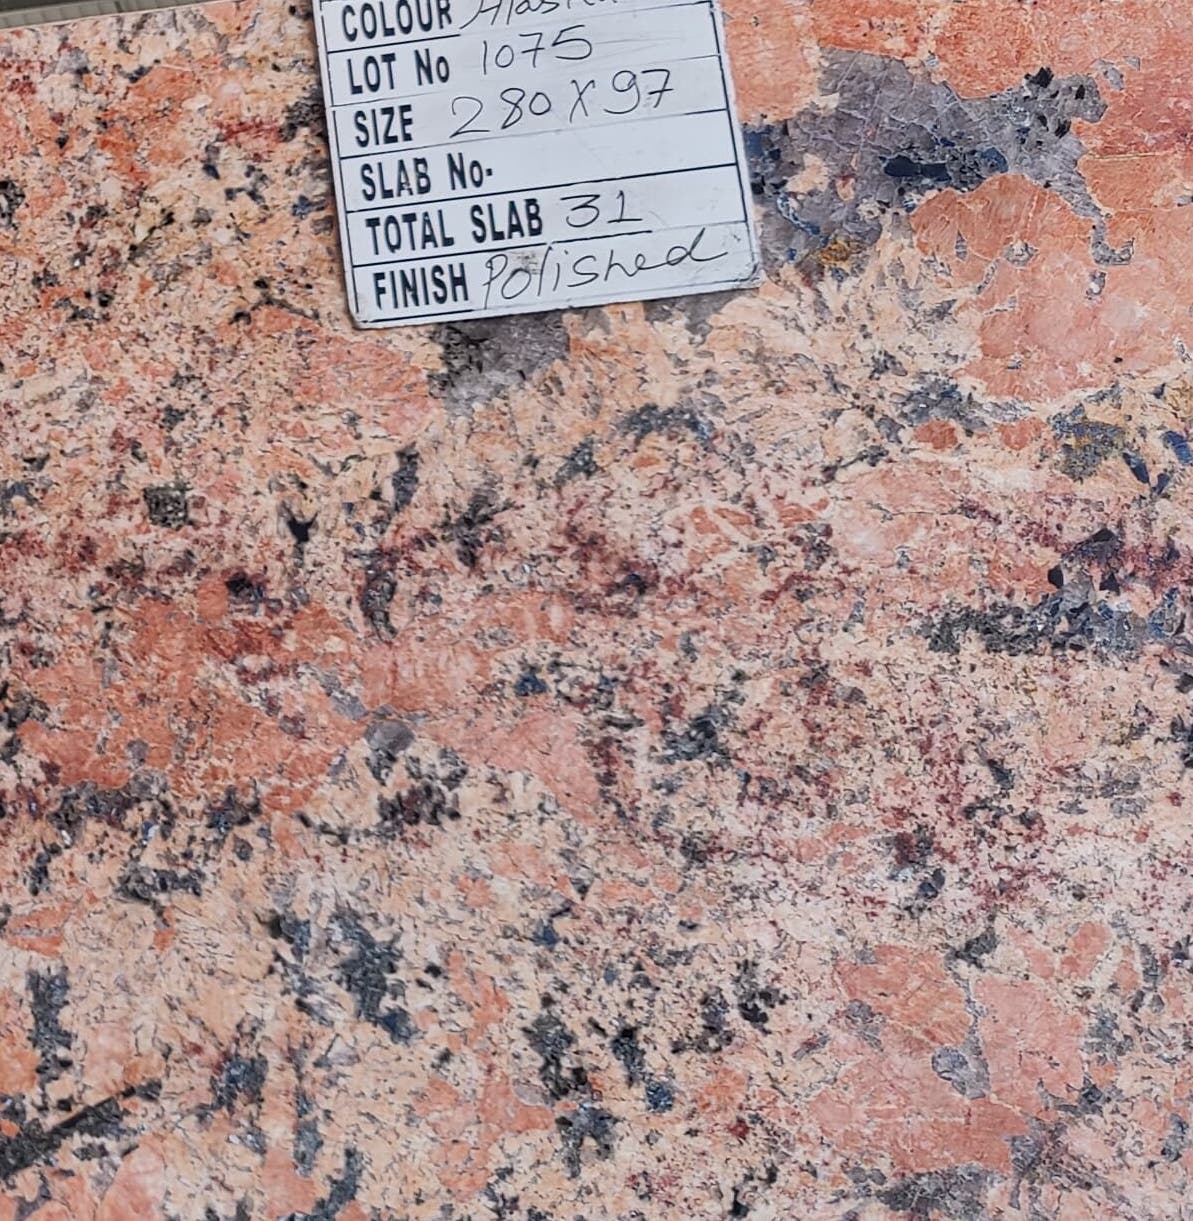 COLOUR Alaska
LOT No 1075
SIZE 280 X 97
SLAB No.
TOTAL SLAB 31
FINISH Polished